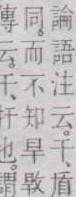 論語注云。干、盾
同。而不知早敢
傳云。干、扞也。謂